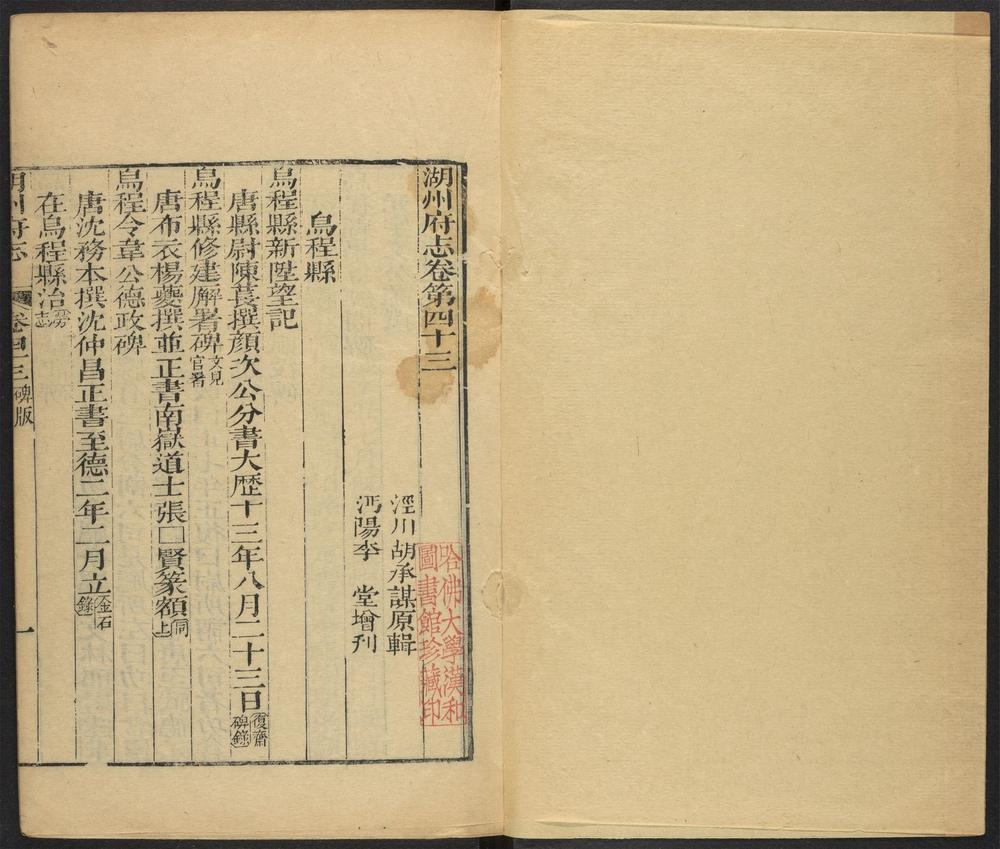 湖州府志卷第四十三
涇川胡承謀原輯
沔陽李 堂增刊
烏程縣
烏程縣新陞望記
唐縣尉陳萇撰顏次公分書大歷十三年八月二十三日復齋碑錄
烏程縣修建廨署碑文見官署
唐布衣楊夔撰並正書南嶽道士張□賢篆額同上
烏程令韋公德政碑
唐沈務本撰沈仲昌正書至德二年二月立金石錄
在烏程縣治勞志
湖州府志 卷四十三碑版 一
哈佛大學漢和圖書館珍藏印